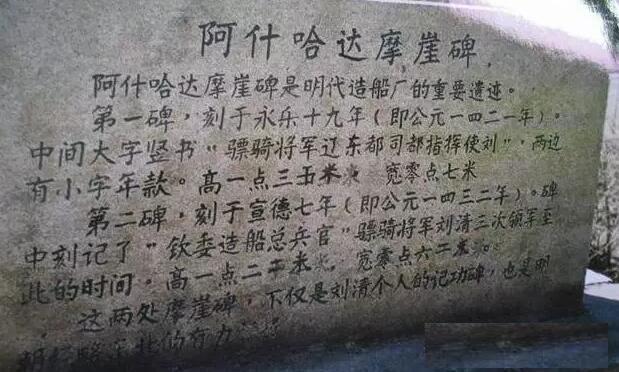 阿什哈达摩崖碑
阿什哈达摩崖碑是明代造船厂的重要遗迹。
第一碑，刻于永乐十九年（即公元一四二一年）。
中间大字竖书“骠骑将军辽东都司都指挥使刘”，两边
有小字年款。高一点三五米 宽零点七米
第二碑，刻于宣德七年（即公元一四三二年）。碑
中刻记了“钦委造船总兵官”骠骑将军刘清三次领军至
此的时间。高一点二米 宽零点六二米。
这两处摩崖碑，不仅是刘清个人的记功碑，也是明
东北的有力